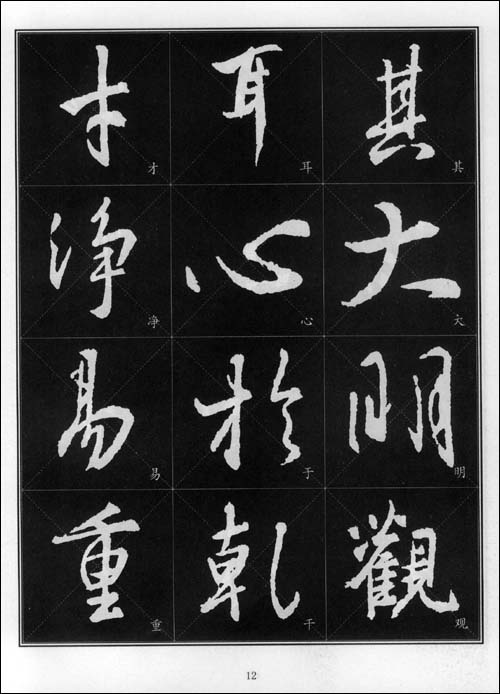 其大明觀
其大明观
耳心於乾
耳心于干
才淨易重
才净易重
12